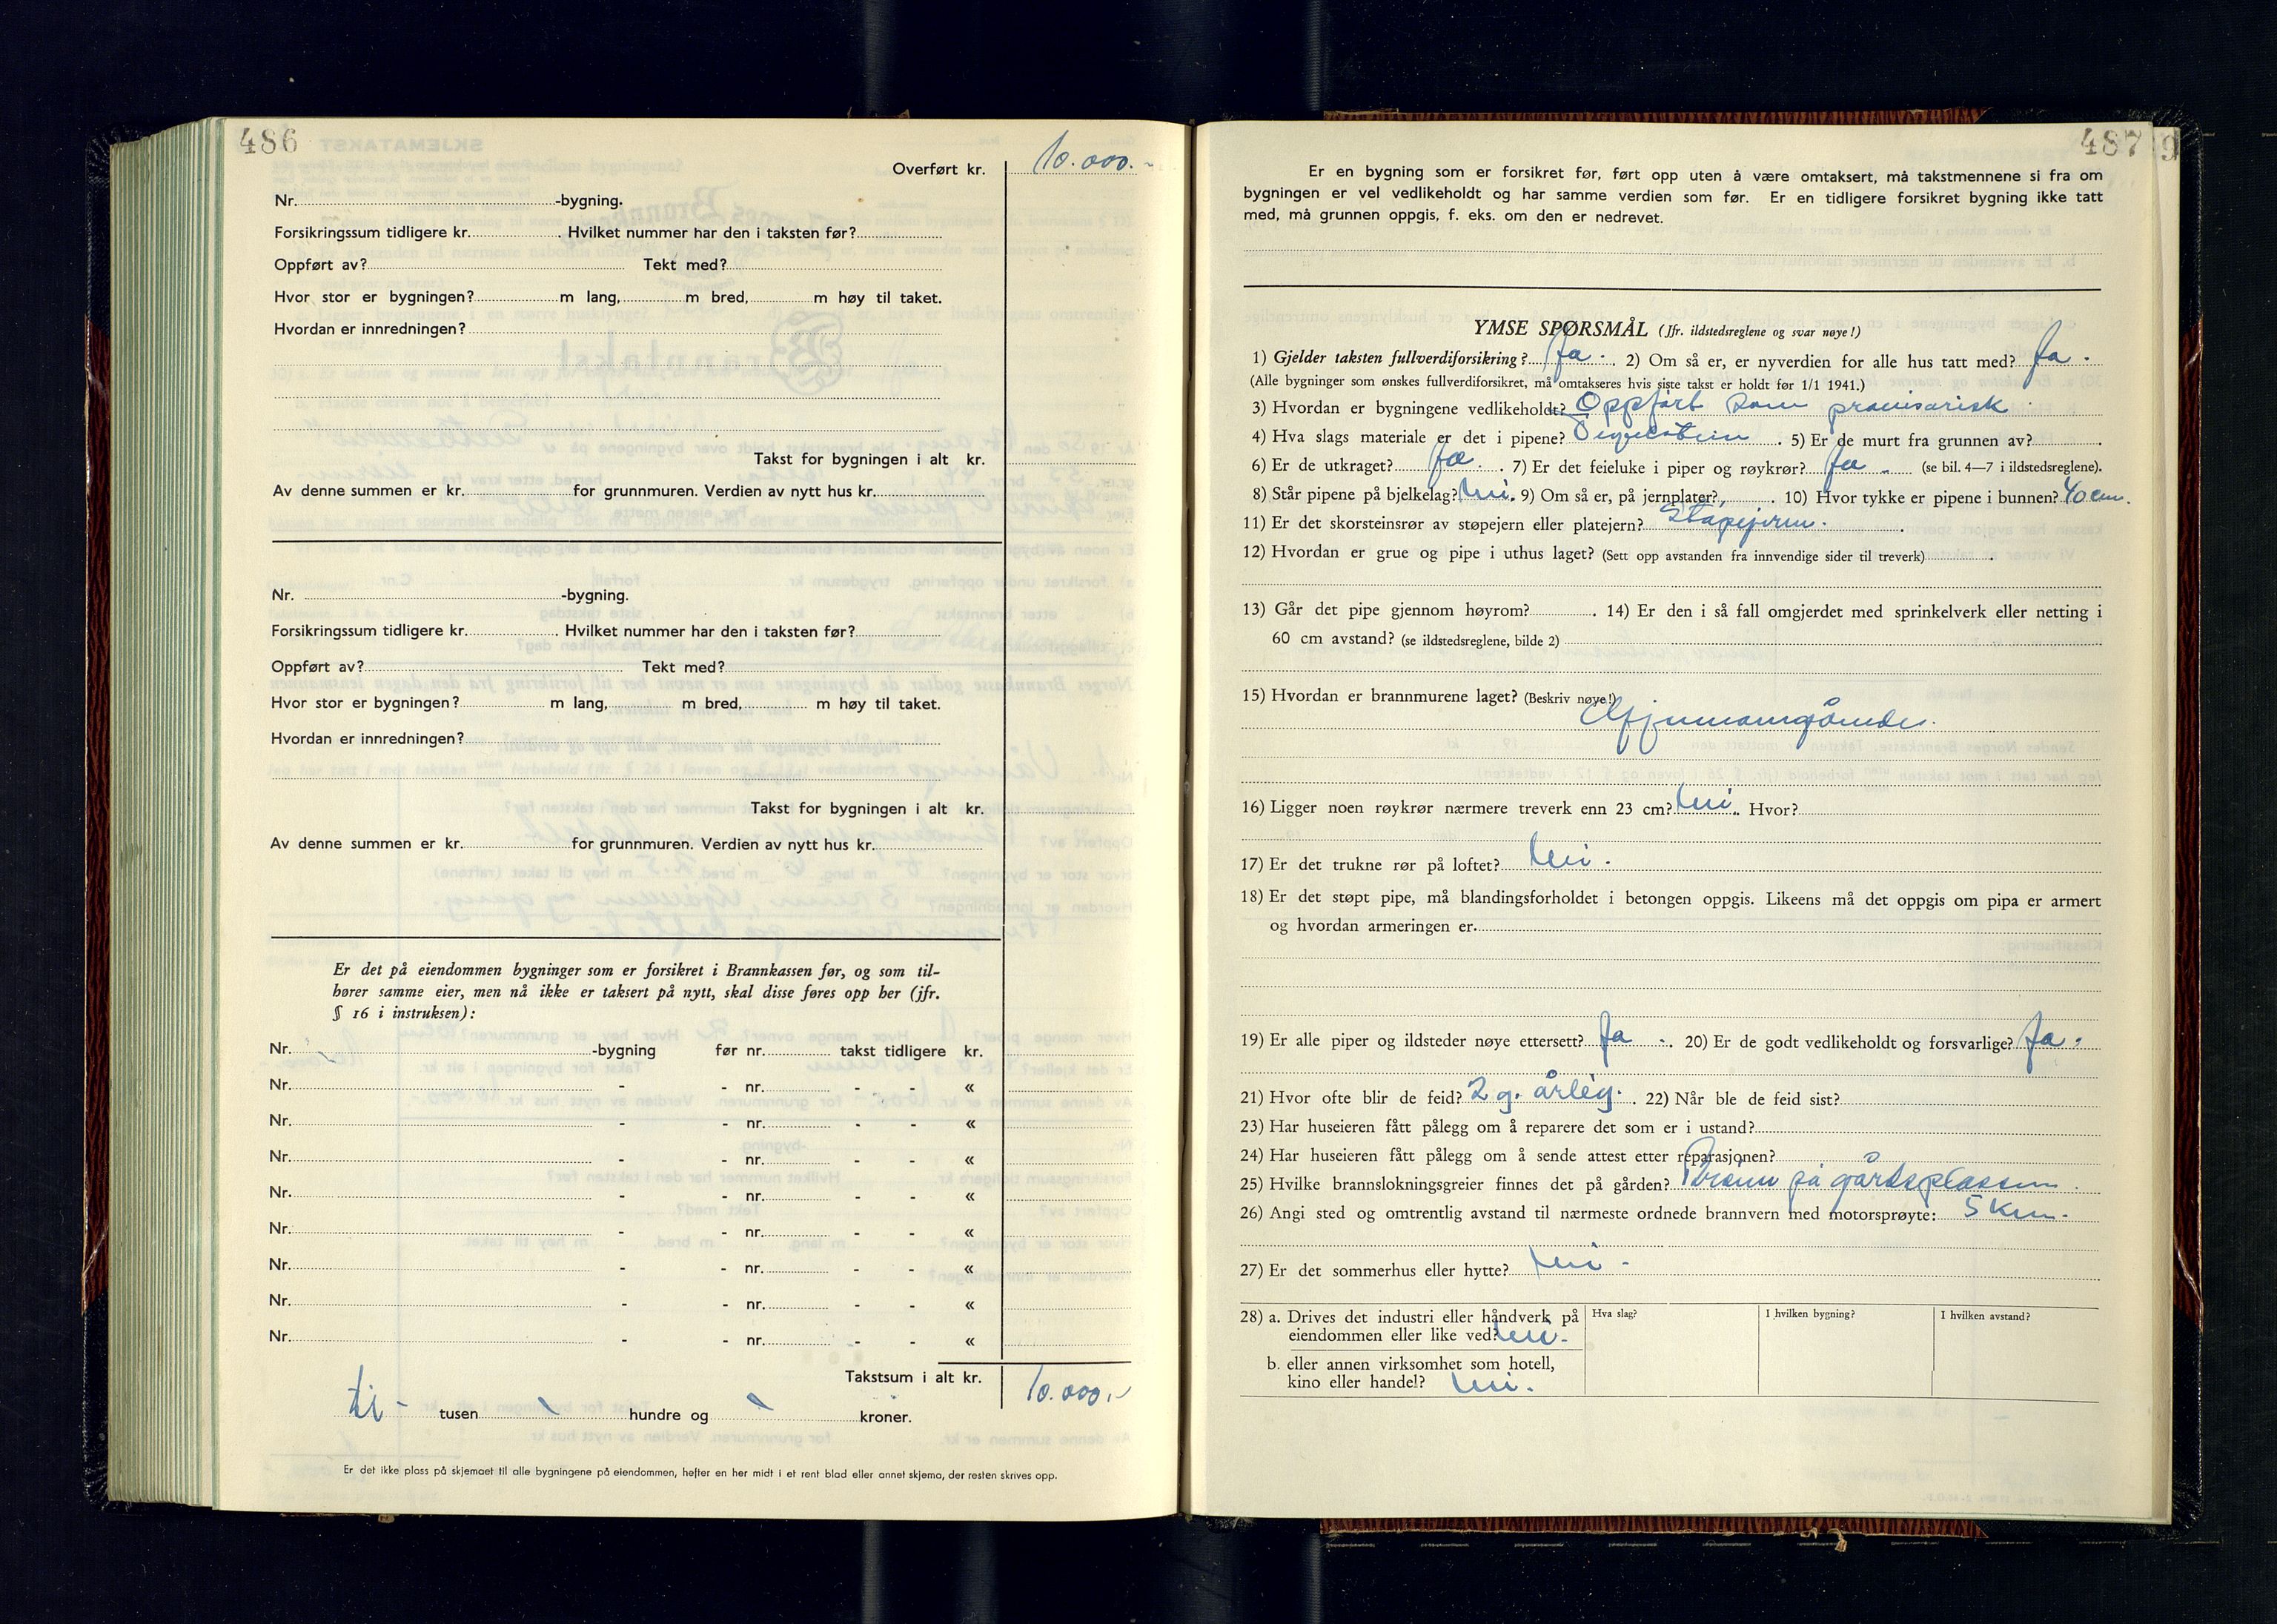 486
Overført kr. 10.000.-
Nr. -bygning.
Forsikringssum tidligere kr. . Hvilket nummer har den i taksten før?
Oppført av? Tekt med?
Hvor stor er bygningen? m lang, m bred, m høy til taket.
Hvordan er innredningen?
Takst for bygningen i alt kr.
Av denne summen er kr. for grunnmuren. Verdien av nytt hus kr.
Nr. -bygning.
Forsikringssum tidligere kr. . Hvilket nummer har den i taksten før?
Oppført av? Tekt med?
Hvor stor er bygningen? m lang, m bred, m høy til taket.
Hvordan er innredningen?
Takst for bygningen i alt kr.
Av denne summen er kr. for grunnmuren. Verdien av nytt hus kr.
Er det på eiendommen bygninger som er forsikret i Brannkassen før, og som til-
hører samme eier, men nå ikke er taksert på nytt, skal disse føres opp her (jfr.
§ 16 i instruksen):
Nr. -bygning før nr. takst tidligere kr.
Nr. - - nr. - - «
Nr. - - nr. - - «
Nr. - - nr. - - «
Nr. - - nr. - - «
Nr. - - nr. - - «
Nr. - - nr. - - «
Nr. - - nr. - - «
Nr. - - nr. - - «
Takstsum i alt kr. 10.000.-
ti - tusen hundre og kroner.
Er det ikke plass på skjemaet til alle bygningene på eiendommen, hefter en her midt i et rent blad eller annet skjema, der resten skrives opp.
487 9
Er en bygning som er forsikret før, ført opp uten å være omtaksert, må takstmennene si fra om
bygningen er vel vedlikeholdt og har samme verdien som før. Er en tidligere forsikret bygning ikke tatt
med, må grunnen oppgis, f. eks. om den er nedrevet.
YMSE SPØRSMÅL (Jfr. ildstedsreglene og svar nøye!)
1) Gjelder taksten fullverdiforsikring? Ja. 2) Om så er, er nyverdien for alle hus tatt med? Ja.
(Alle bygninger som ønskes fullverdiforsikret, må omtakseres hvis siste takst er holdt før 1/1 1941.)
3) Hvordan er bygningene vedlikeholdt? Oppført som provisorisk
4) Hva slags materiale er det i pipene? . 5) Er de murt fra grunnen av? .
6) Er de utkraget? Ja. 7) Er det feieluke i piper og røykrør? Ja. (se bil. 4—7 i ildstedsreglene).
8) Står pipene på bjelkelag? Nei. 9) Om så er, på jernplater? . 10) Hvor tykke er pipene i bunnen? 40 cm.
11) Er det skorsteinsrør av støpejern eller platejern? Støpejern.
12) Hvordan er grue og pipe i uthus laget? (Sett opp avstanden fra innvendige sider til treverk) .
13) Går det pipe gjennom høyrom? . 14) Er den i så fall omgjerdet med sprinkelverk eller netting i
60 cm avstand? (se ildstedsreglene, bilde 2)
15) Hvordan er brannmurene laget? (Beskriv nøye!)
16) Ligger noen røykrør nærmere treverk enn 23 cm? Nei. Hvor?
17) Er det trukne rør på loftet? Nei.
18) Er det støpt pipe, må blandingsforholdet i betongen oppgis. Likeens må det oppgis om pipa er armert
og hvordan armeringen er.
19) Er alle piper og ildsteder nøye ettersett? Ja . 20) Er de godt vedlikeholdt og forsvarlige? Ja.
21) Hvor ofte blir de feid? 2 g. årleg. 22) Når ble de feid sist?
23) Har huseieren fått pålegg om å reparere det som er i ustand?
24) Har huseieren fått pålegg om å sende attest etter reparasjonen?
25) Hvilke brannslokningsgreier finnes det på gården? Brønn på gårdsplassen.
26) Angi sted og omtrentlig avstand til nærmeste ordnede brannvern med motorsprøyte: 5 km.
27) Er det sommerhus eller hytte? Nei -
28) a. Drives det industri eller håndverk på
eiendommen eller like ved? Nei.
Hva slag? I hvilken bygning? I hvilken avstand?
b. eller annen virksomhet som hotell,
kino eller handel? Nei.